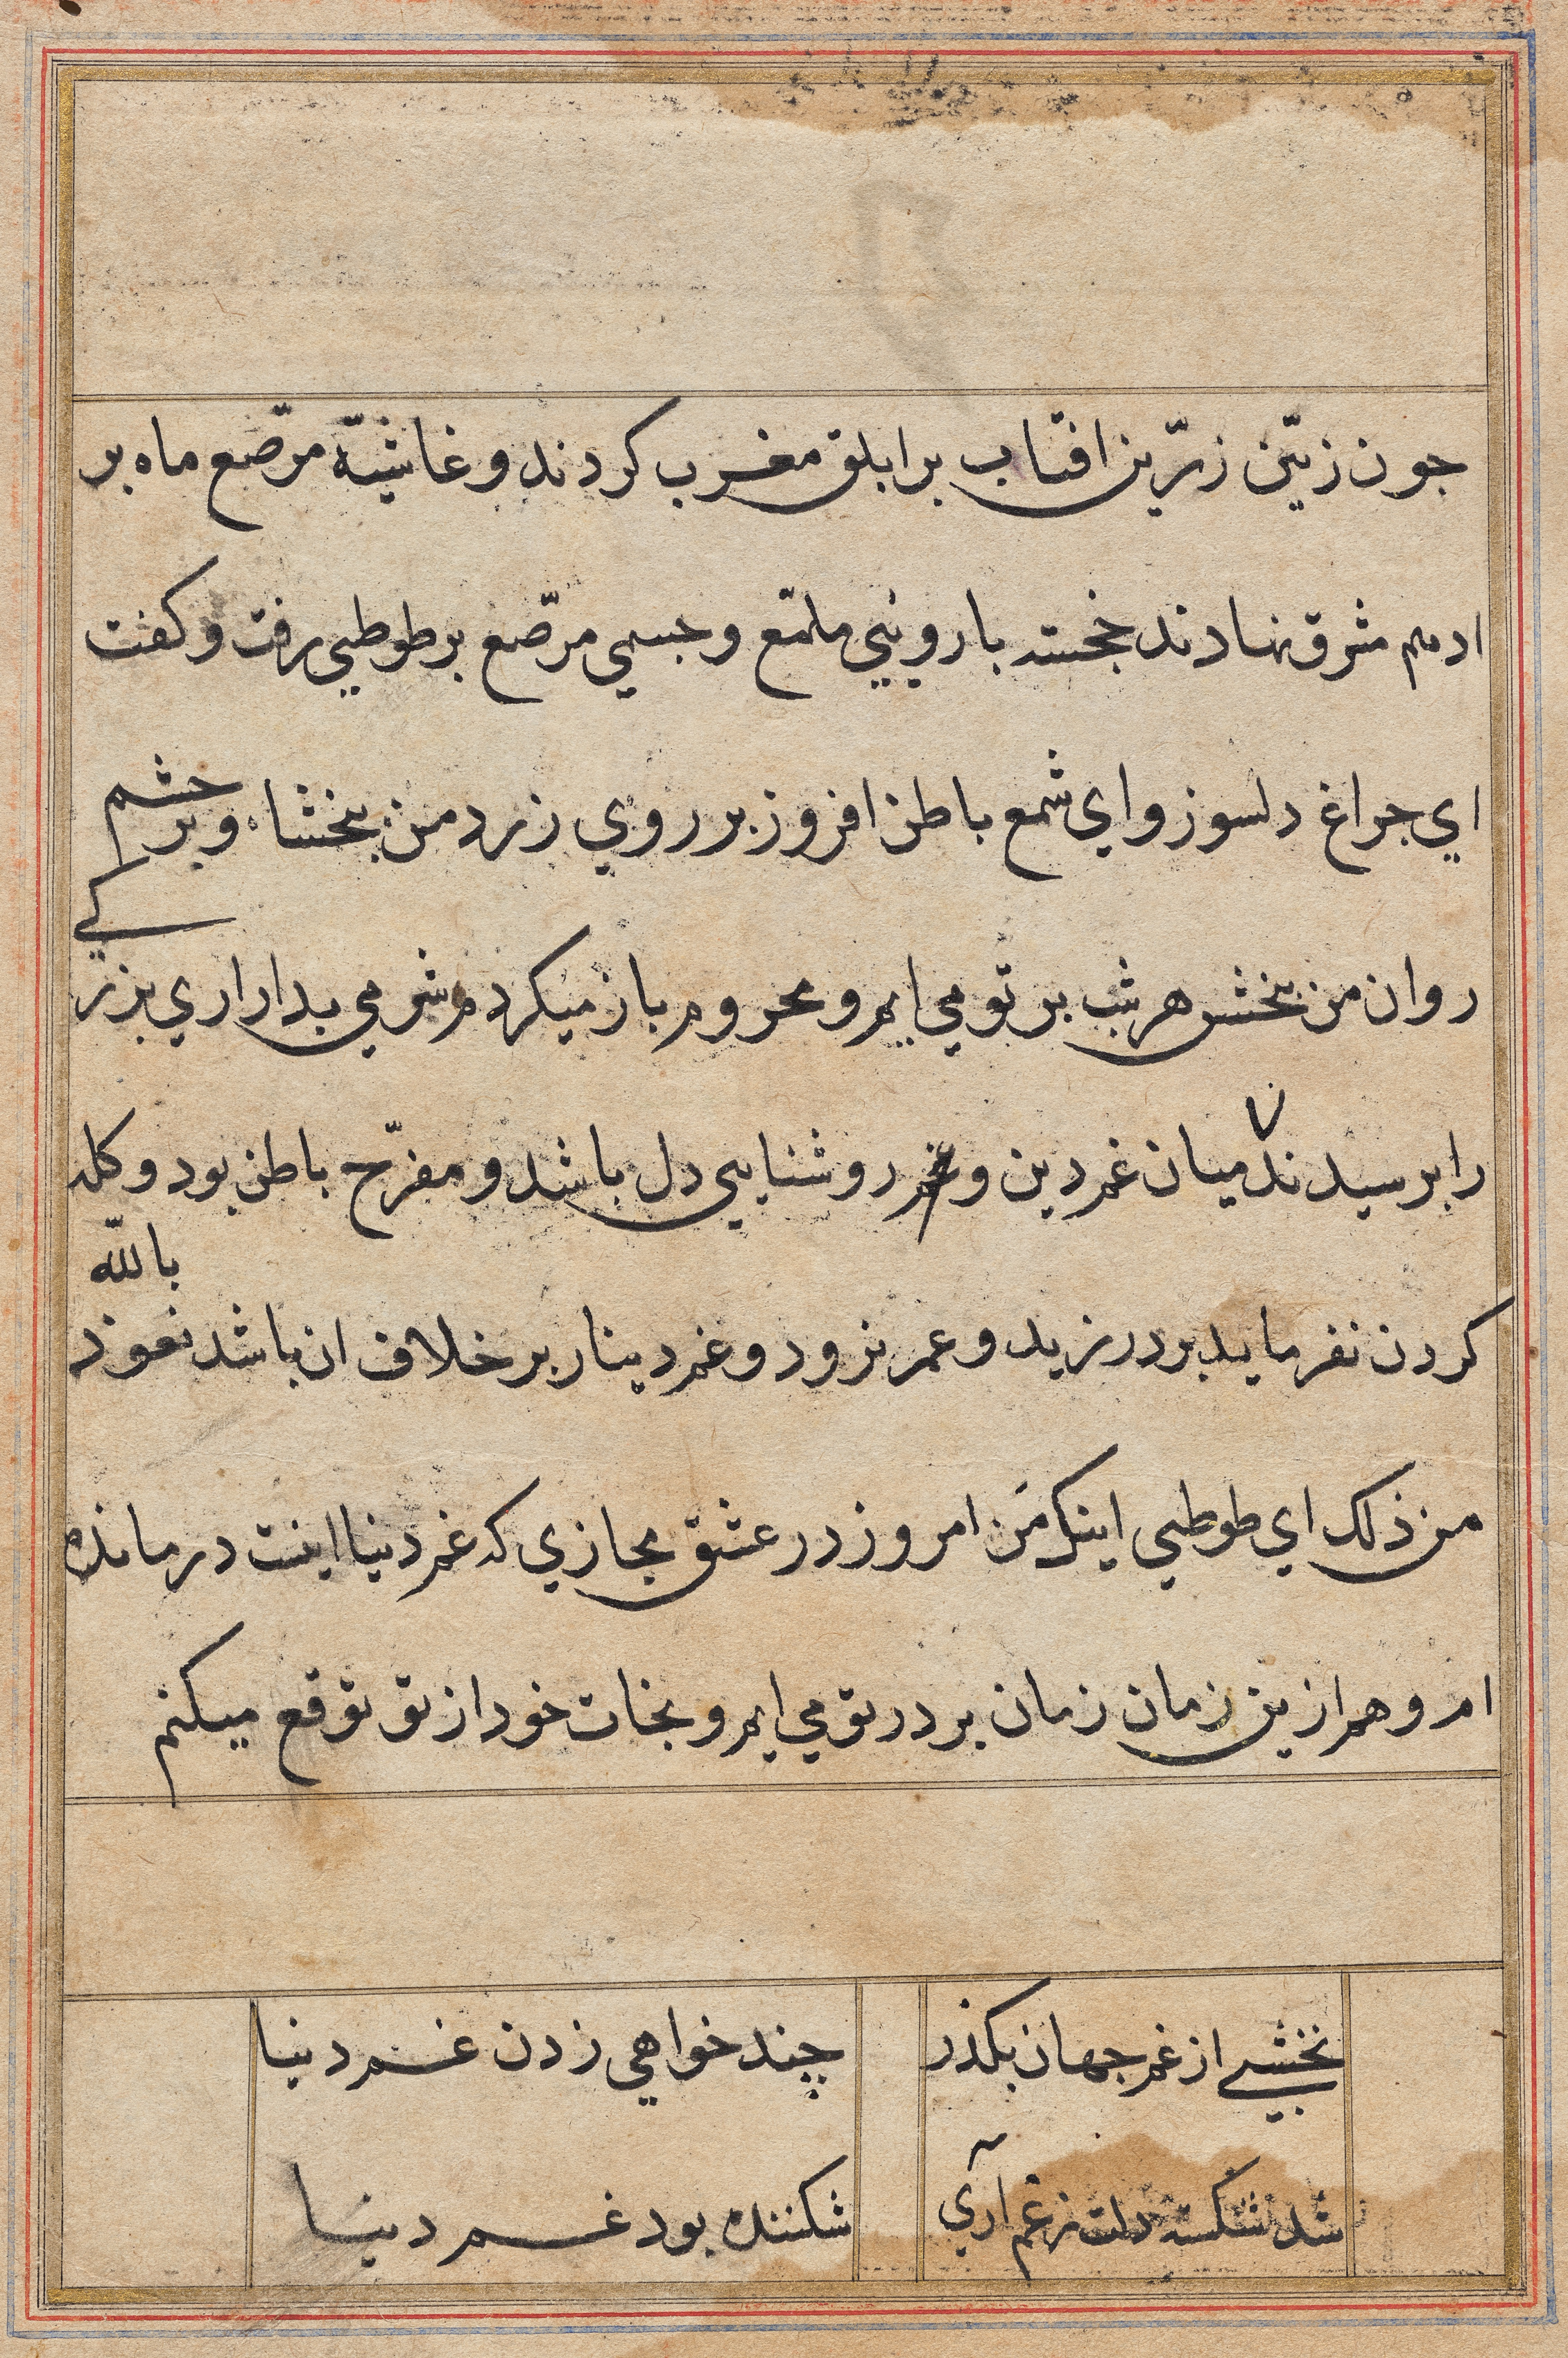 جون زیّن زرّین افتاب بر ابلق مغرب کردند و غاشیّه مرّصع ماه بر
ادهم مشرق نهادند خجسته با رویي ملمّع و جسمي مرّصع بر طوطي رفت و کفت
اي جراغ دلسوز و اي شمع باطن افروز بر روي زرد من ببخشاء و بر چشم
روان من ببخش هر شب بر تو مي ایم و محروم باز میکردم شرمي بدار اري بزرکي
را برسیدند میان غم دین و غم روشنایي دل باشد و مفرّح باطن بود و کله
کردن نفرماید بر در نرید و عمر نرود و غم دینار بر خلاف ان باشد نعوذ بالله
من ذلک اي طوطي اینک من امروز در عشق مجازي که غم دنیا اینست درمانده
ام و هم ازین زمان زمان بر در تو مي ایم و نجات خود از تو توقع میکنم
نخشبي از غم جهان بکذر چند خواهي زدن غم دنیا
شد شکسته دلت ز غم آري شکننده بود غم دنیا